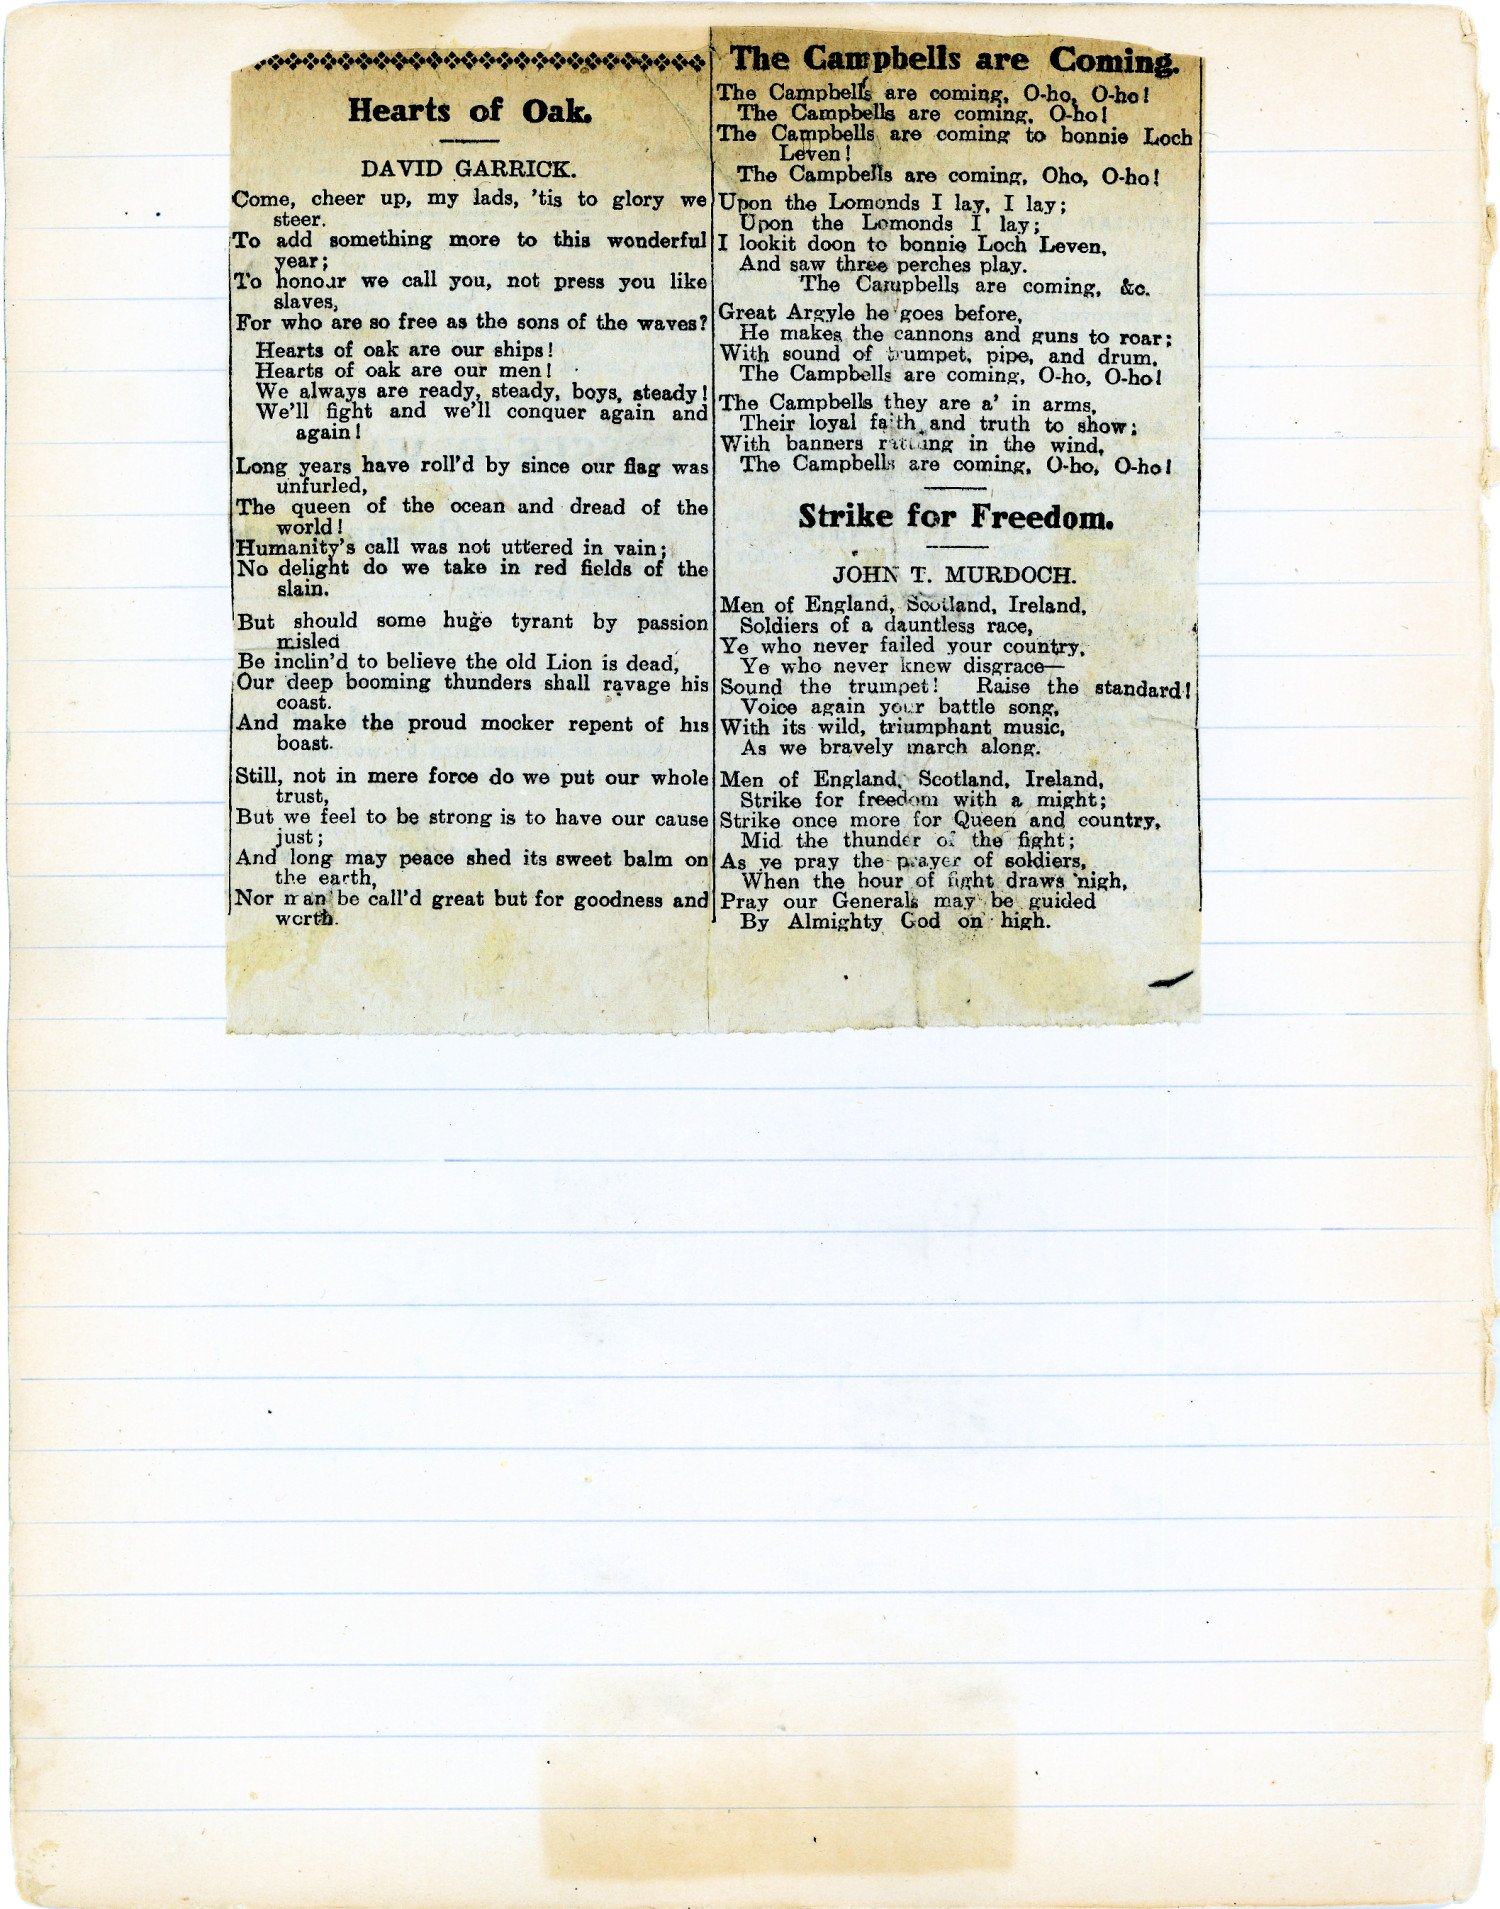 Hearts of Oak.
DAVID GARRICK.
Come, cheer up, my lads, 'tis to glory we
steer.
To add something more to this wonderful
year;
To honour we call you, not press you like
slaves,
For who are so free as the sons of the waves?
Hearts of oak are our ships!
Hearts of oak are our men!
We always are ready, steady, boys, steady!
We'll fight and we'll conquer again and
again!
Long years have roll'd by since our flag was
unfurled,
The queen of the ocean and dread of the
world!
Humanity's call was not uttered in vain;
No delight do we take in red fields of the
slain.
But should some huge tyrant by passion
misled
Be inclin'd to believe the old Lion is dead,
Our deep booming thunders shall ravage his
coast.
And make the proud mocker repent of his
boast.
Still, not in mere force do we put our whole
trust,
But we feel to be strong is to have our cause
just;
And long may peace shed its sweet balm on
the earth,
Nor man be call'd great but for goodness and
worth.
The Campbells are Coming.
The Campbells are coming, O-ho, O-ho!
The Campbells are coming, O-ho!
The Campbells are coming to bonnie Loch
Leven!
The Campbells are coming, Oho, O-ho!
Upon the Lomonds I lay, I lay;
Upon the Lomonds I lay;
I lookit doon to bonnie Loch Leven,
And saw three perches play.
The Campbells are coming, &c.
Great Argyle he goes before,
He makes the cannons and guns to roar;
With sound of trumpet, pipe, and drum,
The Campbells are coming, O-ho, O-ho!
The Campbells they are a' in arms,
Their loyal faith and truth to show;
With banners rattling in the wind,
The Campbells are coming, O-ho, O-ho!
Strike for Freedom.
JOHN T. MURDOCH.
Men of England, Scotland, Ireland,
Soldiers of a dauntless race,
Ye who never failed your country,
Ye who never knew disgrace—
Sound the trumpet! Raise the standard!
Voice again your battle song,
With its wild, triumphant music,
As we bravely march along.
Men of England, Scotland, Ireland,
Strike for freedom with a might;
Strike once more for Queen and country,
Mid the thunder of the fight;
As ye pray the prayer of soldiers,
When the hour of fight draws nigh,
Pray our Generals may be guided
By Almighty God on high.